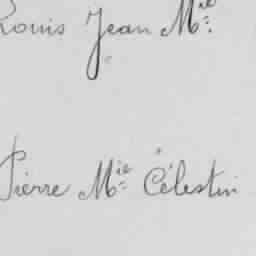 Louis Jean Mie
Pierre Mie Célestin